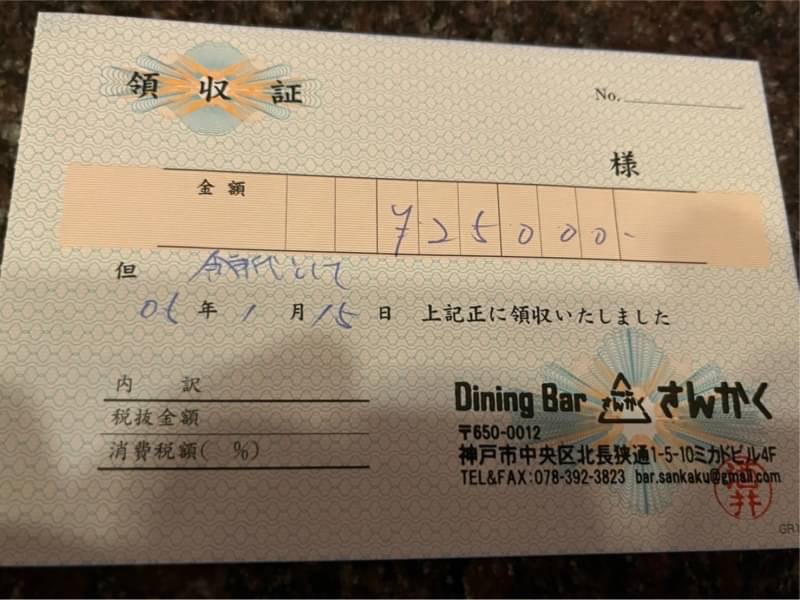 領収証
No.
様
金額 ¥25000-
但 飲食代として
05年1月15日 上記正に領収いたしました
内訳
税抜金額
消費税額( %)
Dining Bar さんかく さんかく
〒650-0012
神戸市中央区北長狭通1-5-10ミカドビル4F
TEL&FAX:078-392-3823 bar.sankaku@gmail.com
酒井